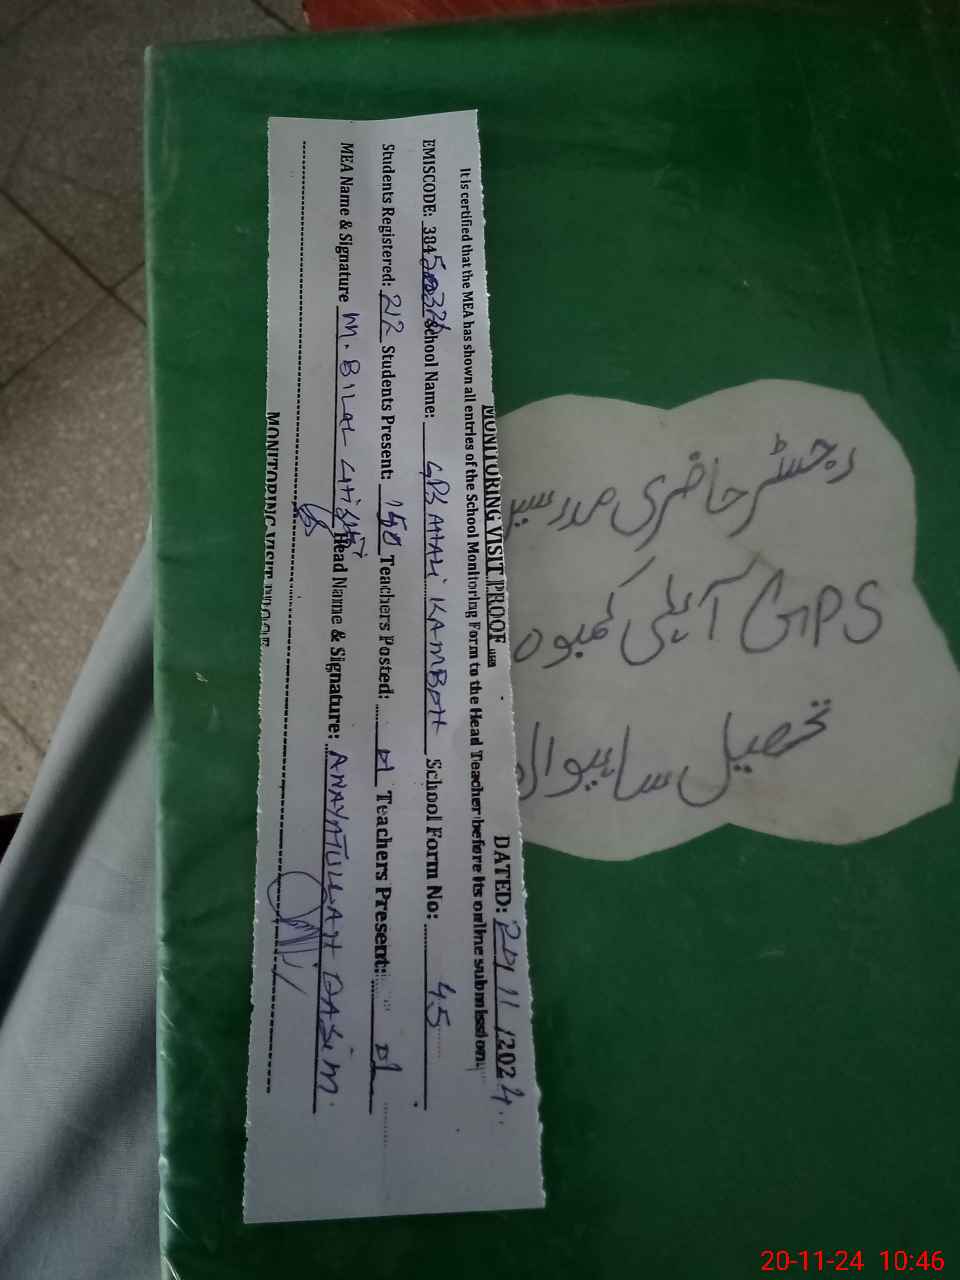 MONITORING VISIT PROOF DATED: 20/11/2024
It is certified that the MEA has shown all entries of the School Monitoring Form to the Head Teacher before its online submission.
EMISCODE: School Name: GPS KAMBOH School Form No: 45
Students Registered: 212 Students Present: 150 Teachers Posted: 01 Teachers Present: 01
MEA Name & Signature M. BILAL Head Name & Signature: ANAYATULLAH QASIM
MONITORING VISIT PROOF
رجسٹر حاضری مدرسین
GPS آہلی کمبوہ
تحصیل ساہیوال
20-11-24 10:46